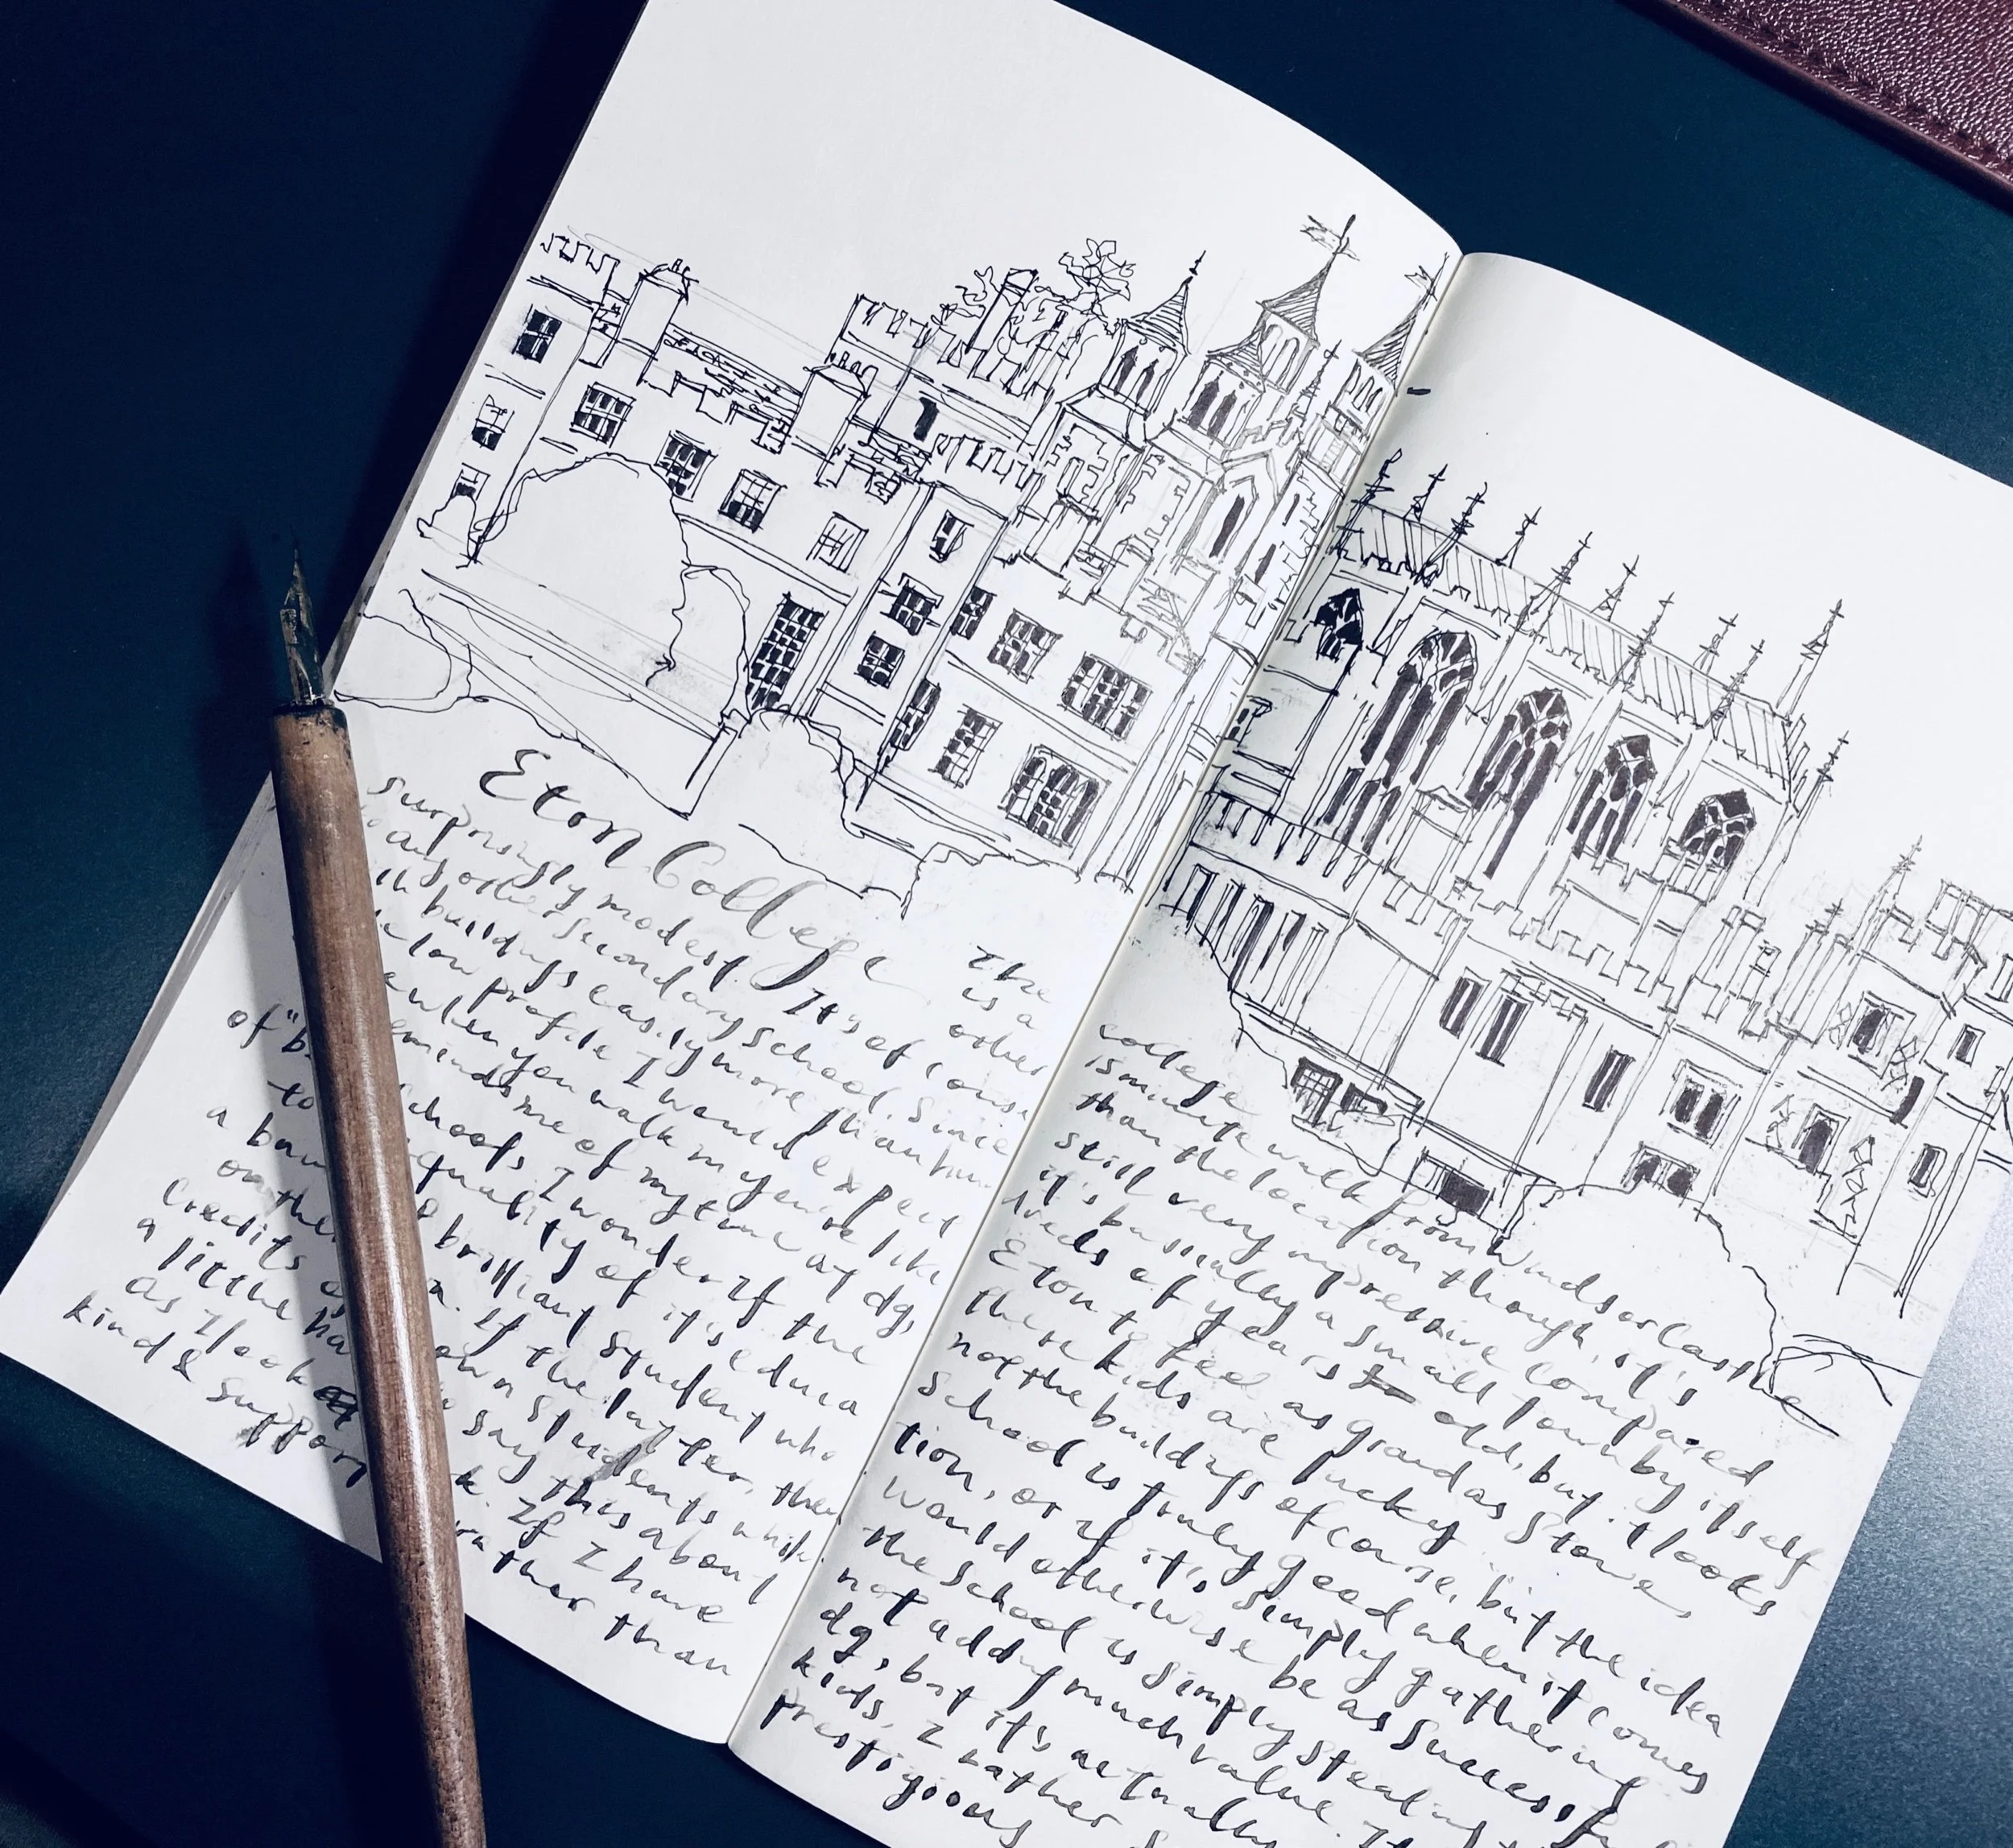 Eton College the
is a
surprisingly modest. other
It's of course
any other secondary school. Since
buildings easily more than hun-
low profile I would expect
when you walk my youre like
of "b reminds me of my time at dg,
to schools, I wonder if the
a quality of it's educa
on the brilliant student who
credits If the latter, then
a little own students while
as I look say this about
kind & support If I have
rather than
college
is minute walk from Windsor Castle
than the location though, it's
still very impressive compared
it's basically a small town by itself
dreds of years to old, but it looks
Eton to feel as grand as Stowe,
these kids are lucky
not the buildings of course, but the idea
school is truly good when it comes
tion, or if it's simply gathering
would otherwise be as successful
the school is simply stealing
not adding much value. If
dg, but it's actually
kids, I rather
prestigious